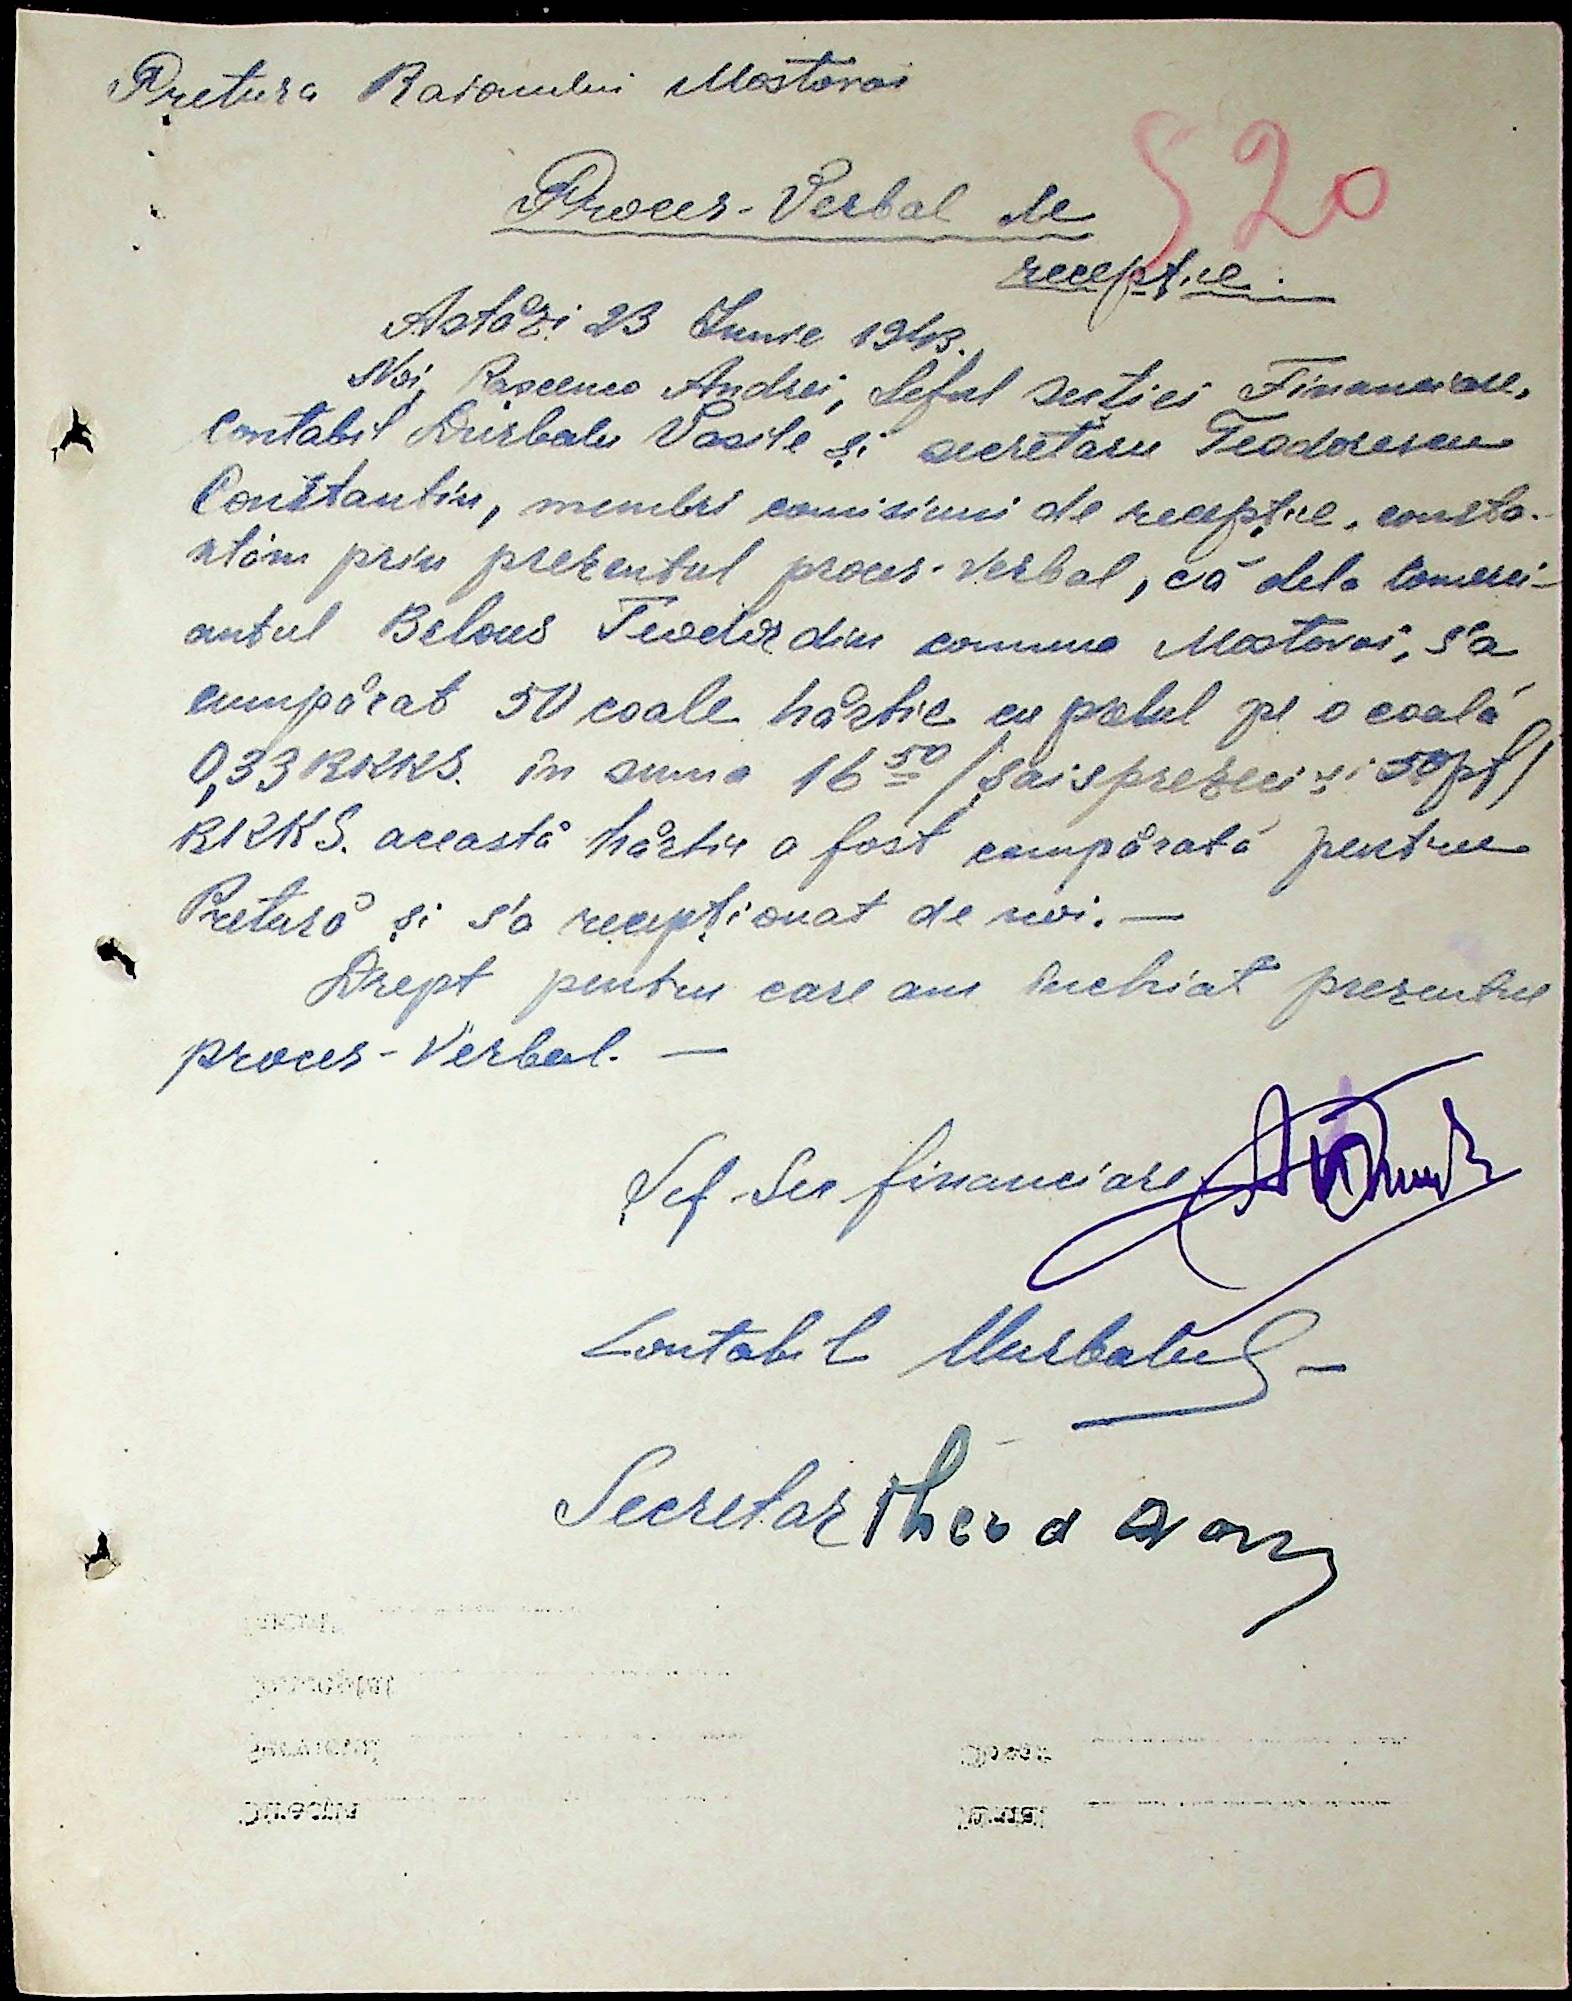 Pretura Raionului Mostovoi
520
Proces-Verbal de
recepție.
Astăzi 23 Iunie 1943.
Noi, Rașcenco Andrei, șeful secției Financiare,
Contabil Durbalu Vasile și secretaru Teodorescu
Constantin, membri comisiuni de recepție, consta-
ntăm prin prezentul proces-verbal, că dela comerci-
antul Belous Teodor din comuna Mostovoi, s'a
cumpărat 50 coale hârtie cu prețul pe o coală
0,33 RKKS. în suma 16 50 /șaisprezeci și 50 pf/
RKKS. această hârtie a fost cumpărată pentru
Pretură și s'a recepționat de noi. —
Drept pentru care am încheiat prezentul
proces-Verbal. —
Șef-Sec financiare
Contabil Durbalu —
Secretar